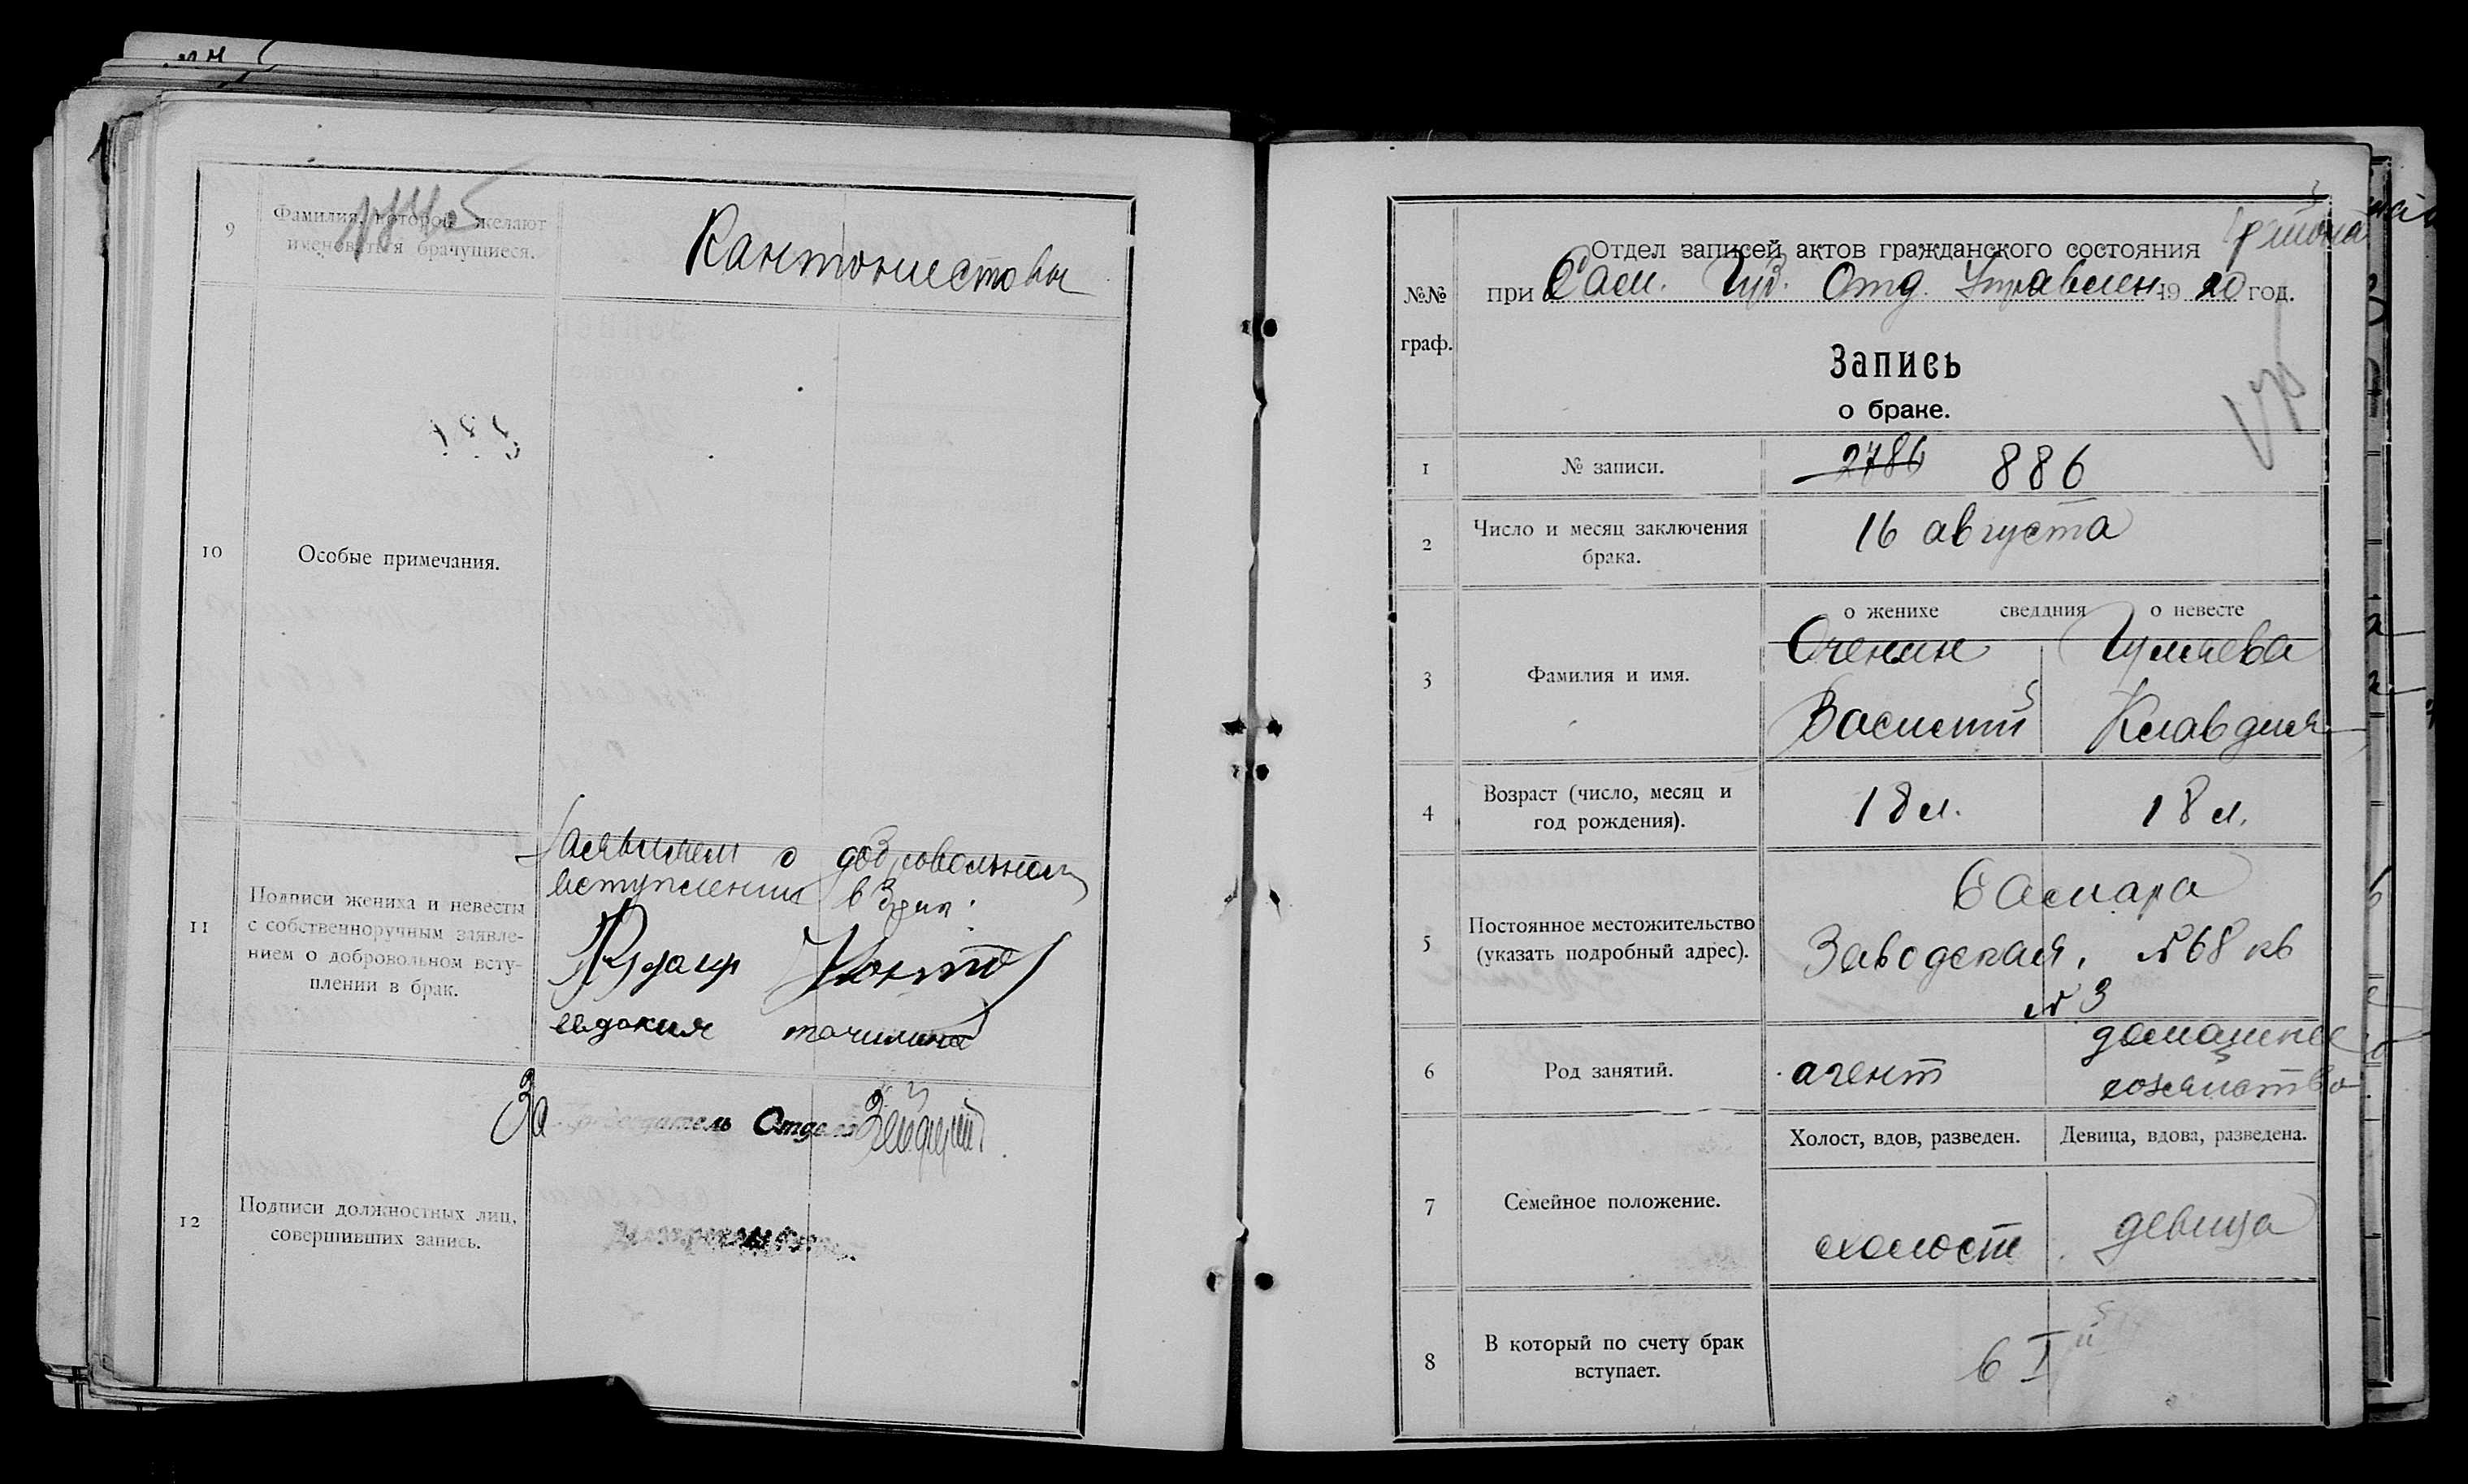 9
Фамилия, которой желают
именоваться брачущиеся.
Кантонистовы
10
Особые примечания.
11
Подписи жениха и невесты
с собственноручным заявле-
нием о добровольном всту-
плении в брак.
Заявляем о добровольном
вступлении в брак.
евдокия точилина
12
Подписи должностных лиц,
совершивших запись.
За
Отдела
№№
граф.
Отдел записей актов гражданского состояния
района
при Сам. Губ. Отд. Управлен. 1920 год.
Запись
о браке.
1
№ записи.
2786 886
2
Число и месяц заключения
брака.
16 августа
о женихе сведдния о невесте
3
Фамилия и имя.
Оченин
Василий Клавдия
4
Возраст (число, месяц и
год рождения).
18 л. 18 л.
5
Постоянное местожительство
(указать подробный адрес).
Самара
Заводская, №68 кв
№ 3
6
Род занятий.
агент
домашнее
хозяйство
7
Семейное положение.
Холост, вдов, разведен. Девица, вдова, разведена.
холост девица
8
В который по счету брак
вступает.
в I й